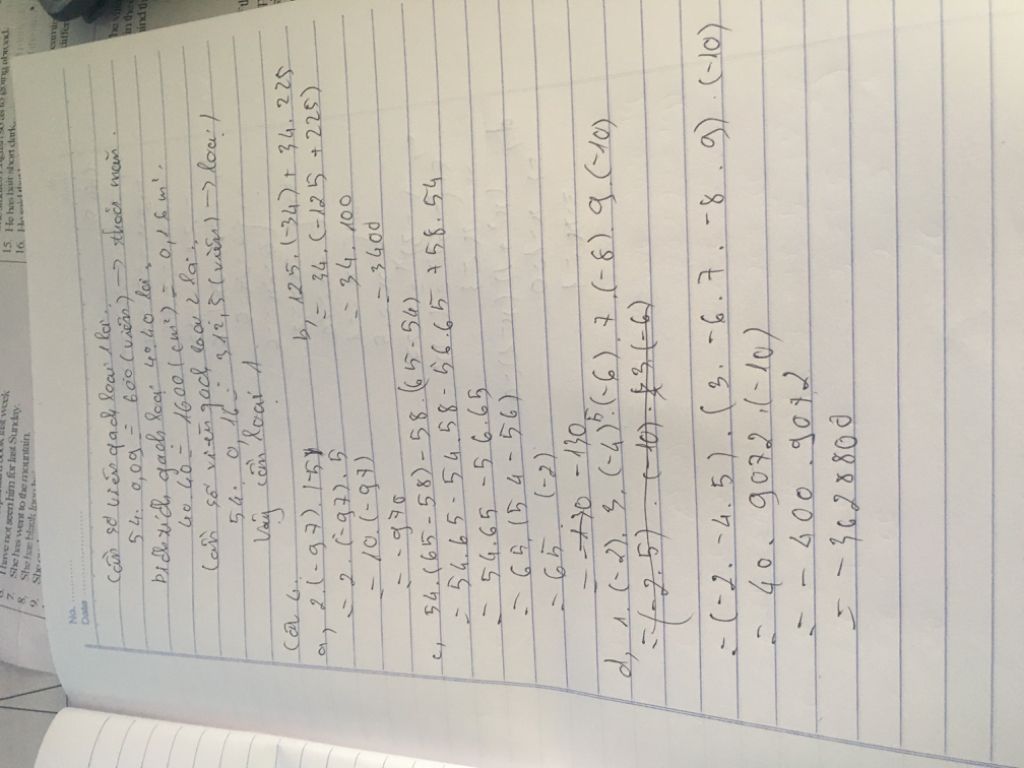 15. He has hair short dark.
7. She has went to the mountain.
8.
9.
No.
Date
Cần số viên gạch loại 1 là:
54 : 0,09 = 600 (viên) → thỏa mãn.
Diện tích gạch loại 40.40 là:
40.40 = 1600 (cm²) = 0,16 m².
Cần số viên gạch loại 2 là:
54 : 0,16 = 312,5 (viên) → loại!
Vậy cần loại 1
Câu 4.
a, 2.(-97).(-5)
= -2.(-97).5
= 10.(-97)
= -970
b, 125.(-34) + 34.225
= 34.(-125 + 225)
= 34.100
= 3400
c, 54.(65-58) - 58.(65-54)
= 54.65 - 54.58 - 5665 + 58.54
= 54.65 - 56.65
= 65.(54 - 56)
= 65 (-2)
= -130
d, 1.(-2).3.(-4)5.(-6).7.(-8).9.(-10)
= (-2.5).(-10).3.(-6)
= (-2.-4.5).(3.-6.7.-8.9).(-10)
= 40.9072.(-10)
= -400.9072
= -3628800